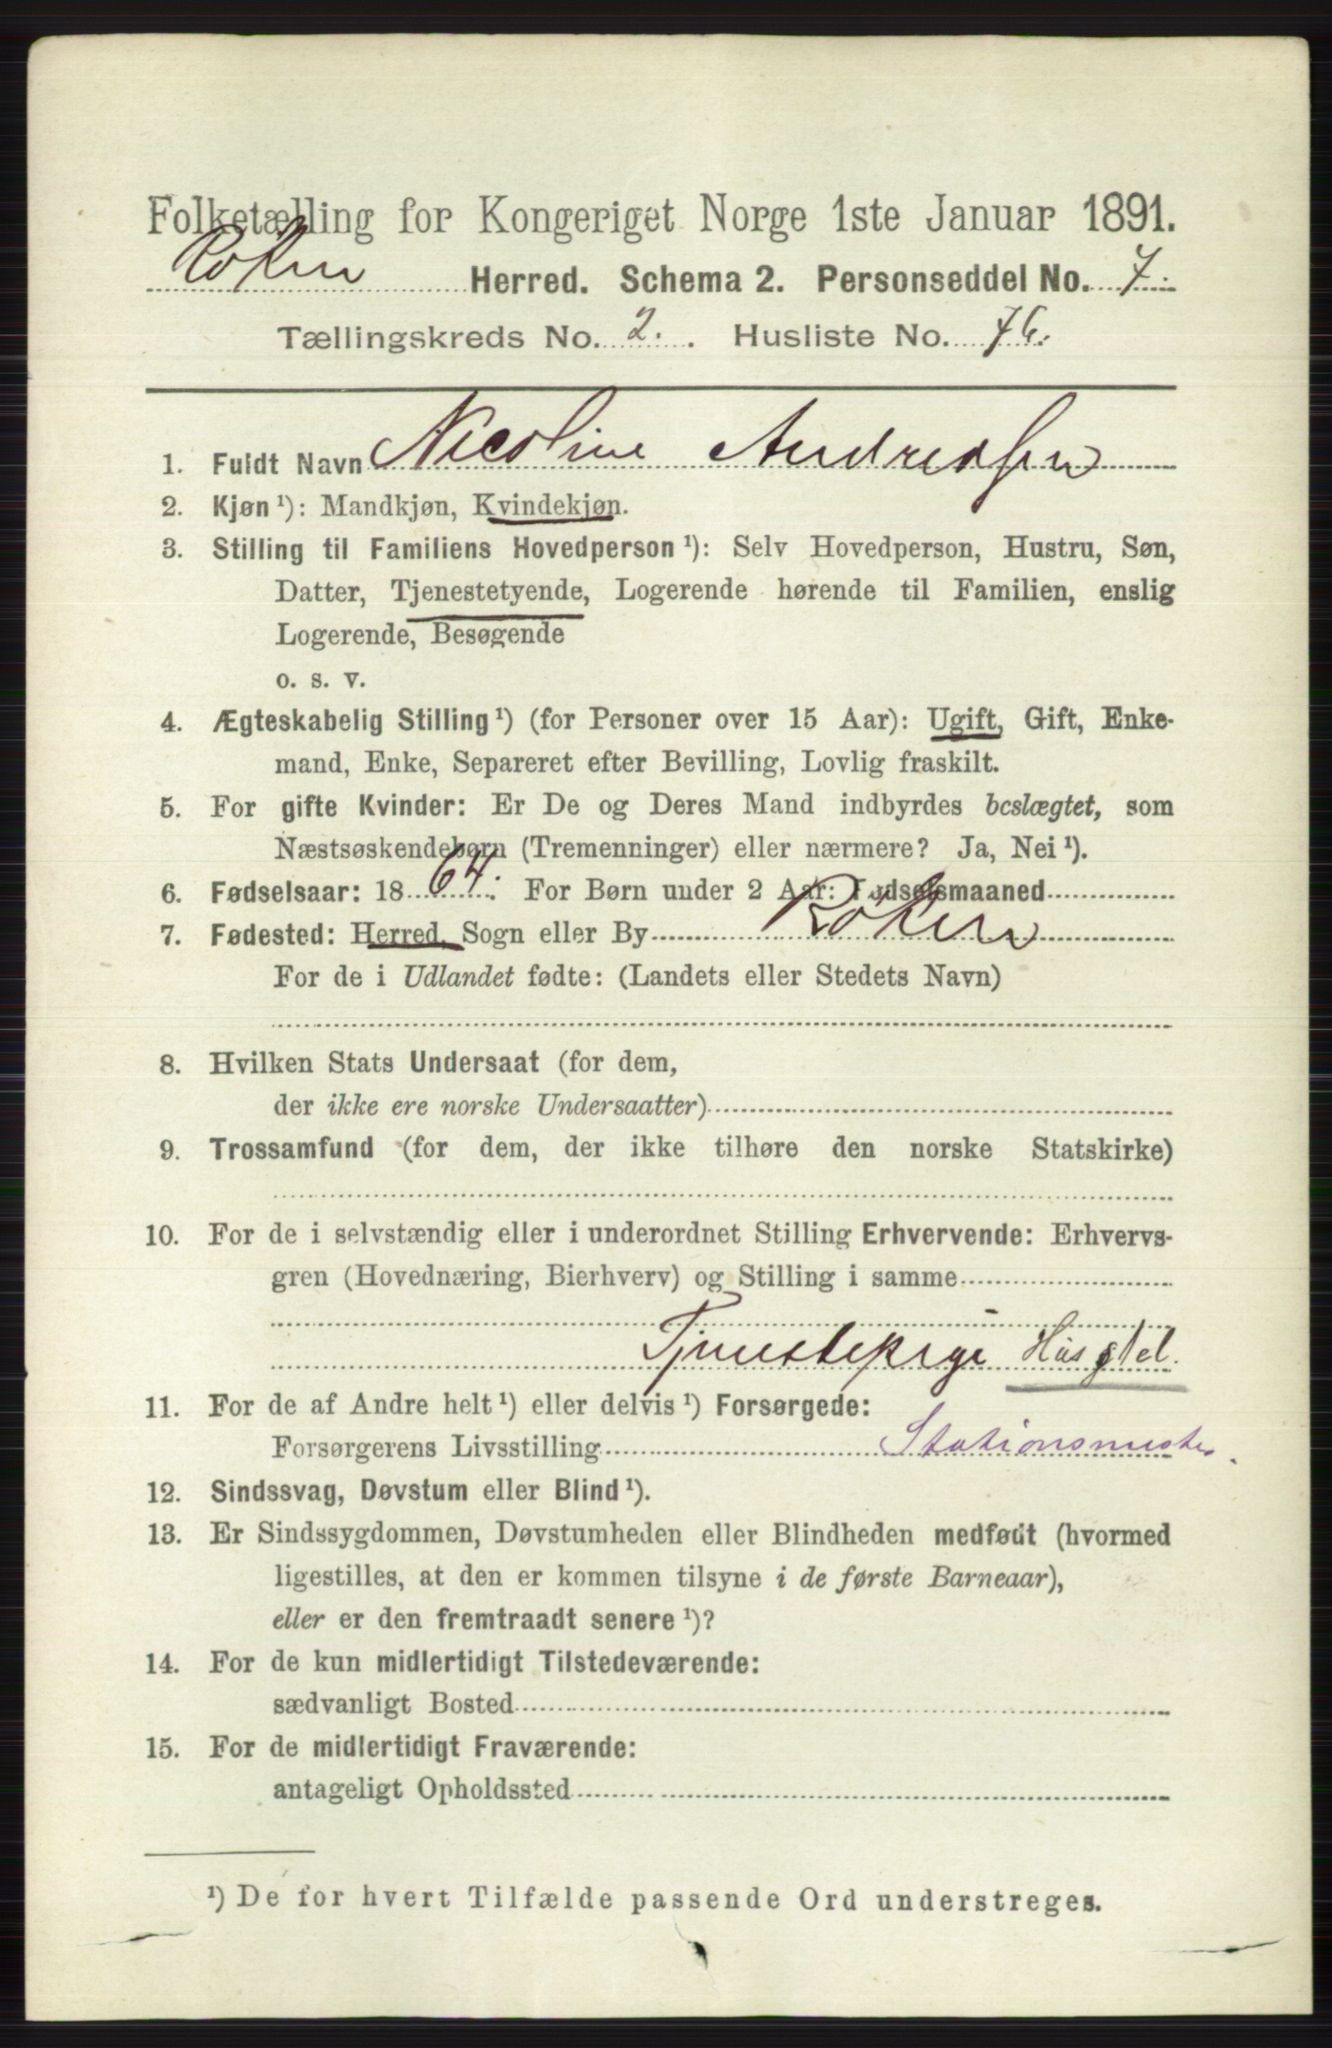 Folketælling for Kongeriget Norge 1ste Januar 1891.
Röken Herred. Schema 2. Personseddel No. 7.
Tællingskreds No. 2. Husliste No. 76.
1. Fuldt Navn Nicoline Andreasen
2. Kjøn ¹): Mandkjøn, Kvindekjøn.
3. Stilling til Familiens Hovedperson ¹): Selv Hovedperson, Hustru, Søn,
Datter, Tjenestetyende, Logerende hørende til Familien, enslig
Logerende, Besøgende
o. s. v.
4. Ægteskabelig Stilling ¹) (for Personer over 15 Aar): Ugift, Gift, Enke-
mand, Enke, Separeret efter Bevilling, Lovlig fraskilt.
5. For gifte Kvinder: Er De og Deres Mand indbyrdes beslægtet, som
Næstsøskendebørn (Tremenninger) eller nærmere? Ja, Nei ¹).
6. Fødselsaar: 1864. For Børn under 2 Aar: Fødselsmaaned
7. Fødested: Herred, Sogn eller By Röken
For de i Udlandet fødte: (Landets eller Stedets Navn)
8. Hvilken Stats Undersaat (for dem,
der ikke ere norske Undersaatter)
9. Trossamfund (for dem, der ikke tilhøre den norske Statskirke)
10. For de i selvstændig eller i underordnet Stilling Erhvervende: Erhvervs-
gren (Hovednæring, Bierhverv) og Stilling i samme
Tjenestepige Husstel.
11. For de af Andre helt ¹) eller delvis ¹) Forsørgede:
Forsørgerens Livsstilling Stationsmester.
12. Sindssvag, Døvstum eller Blind ¹).
13. Er Sindssygdommen, Døvstumheden eller Blindheden medfødt (hvormed
ligestilles, at den er kommen tilsyne i de første Barneaar),
eller er den fremtraadt senere ¹)?
14. For de kun midlertidigt Tilstedeværende:
sædvanligt Bosted
15. For de midlertidigt Fraværende:
antageligt Opholdssted
¹) De for hvert Tilfælde passende Ord understreges.